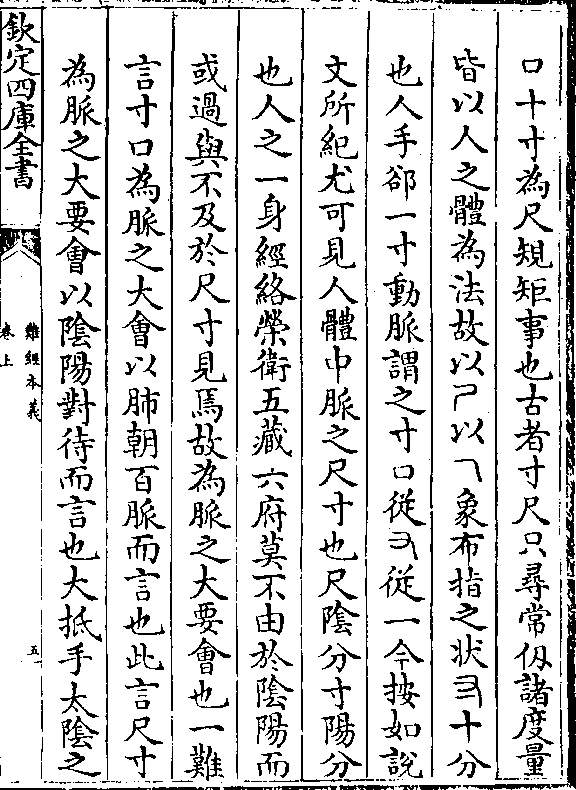 口十寸為尺規矩事也古者寸尺只尋常仭諸度量
皆以人之體為法故以尸以乀象布指之状十分
也人手郤一寸動脈謂之寸口從从一今按如說
文所紀尤可見人體中脈之尺寸也尺陰分寸陽分
也人之一身經絡榮衛五藏六府莫不由於陰陽而
或過與不及於尺寸見焉故為脈之大要會也一難
言寸口為脈之大會以肺朝百脈而言也此言尺寸
為脈之大要會以陰陽對待而言也大抵手太陰之
欽定四庫全書
難經本義
卷上
五